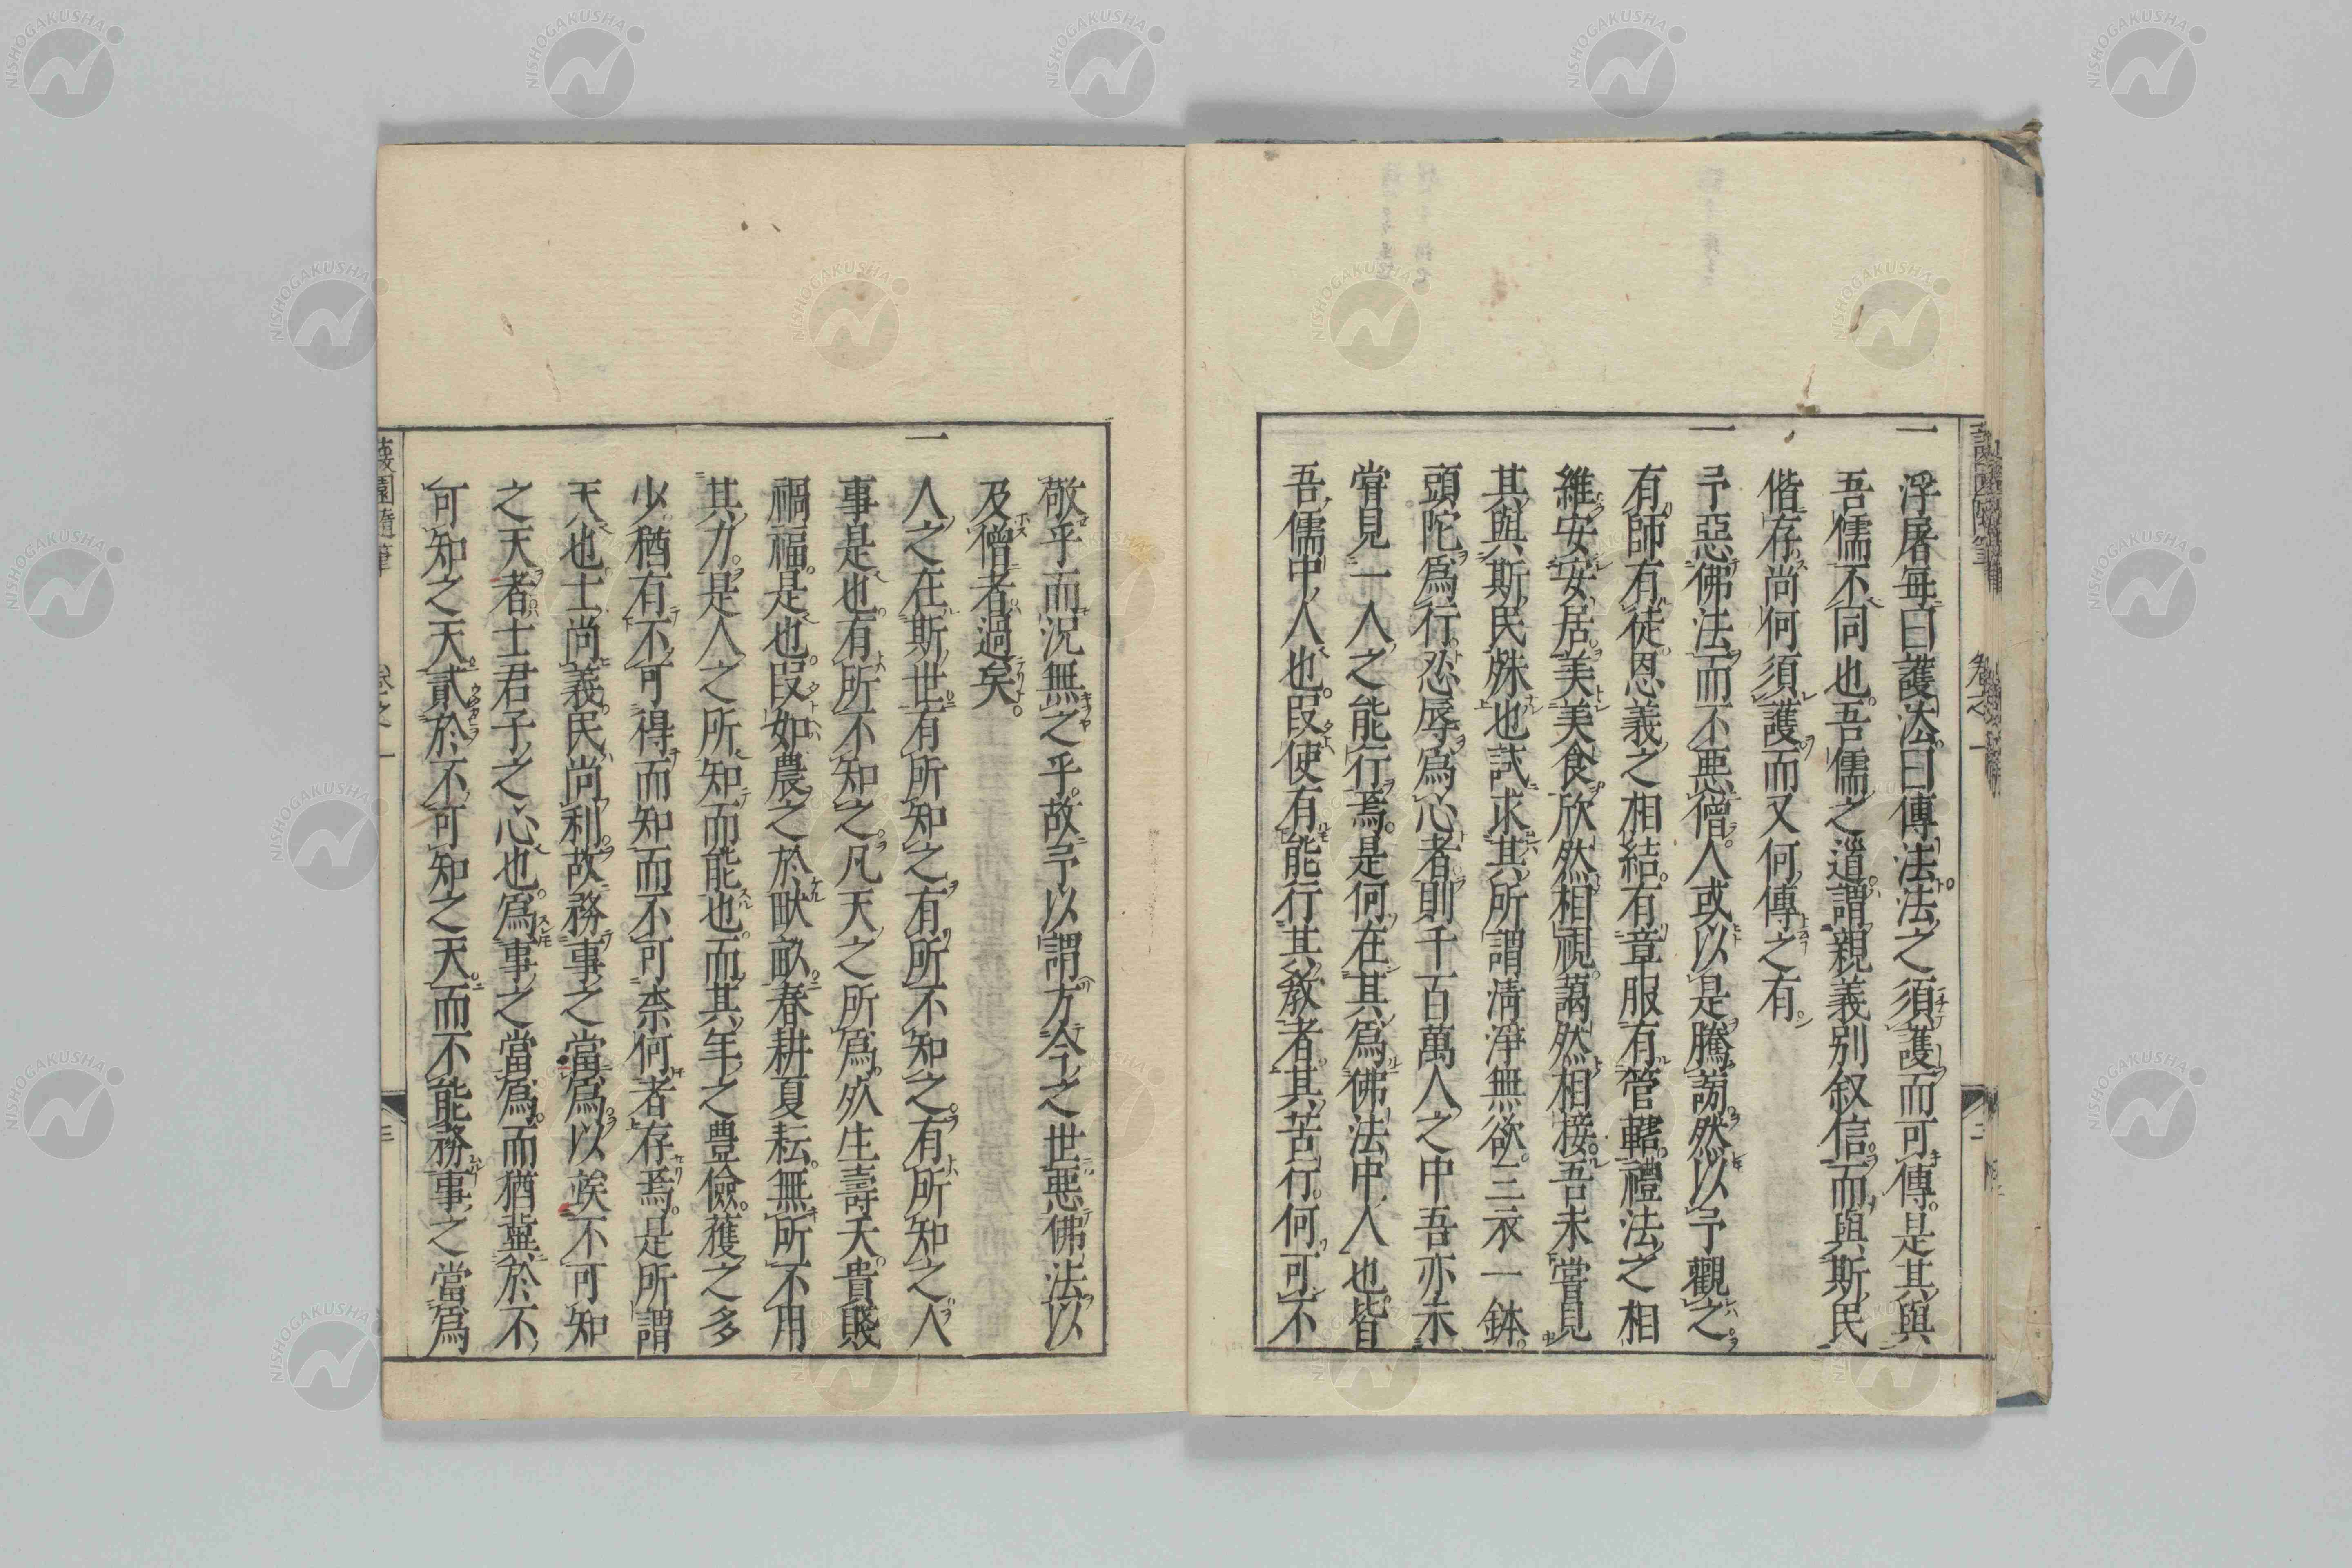 一 浮屠每曰護法曰傳法法之須護而可傳是其與
吾儒不同也吾儒之道謂親義別叙信而與斯民
偕存尚何須護而又何傳之有
一 予惡佛法而不惡僧人或以是騰謗然以予觀之
有師有徒恩義之相結有章服有管轄禮法之相
維安安居美美食欣然相視藹然相接吾未嘗見
其與斯民殊也試求其所謂淸淨無欲三衣一鉢
頭陀爲行忍辱爲心者則千百萬人之中吾亦未
嘗見一人之能行焉是何在其爲佛法中人也皆
吾儒中人也叚使有能行其敎者其苦行何可不
敬乎而況無之乎故予以謂方今之世惡佛法以
及僧者過矣
一 人之在斯世有所知之有所不知之有所知之人
事是也有所不知之凡天之所爲死生壽夭貴賤
禍福是也叚如農之於畎畝春耕夏耘無所不用
其力是人之所知而能也而其年之豊儉穫之多
少猶有不可得而知而不可柰何者存焉是所謂
天也士尚義民尚利故務事之當爲以竢不可知
之天者士君子之心也爲事之當爲而猶冀於不
可知之天貳於不可知之天而不能務事之當爲
蘐園隨筆 卷之一 三
NISHOGAKUSHA